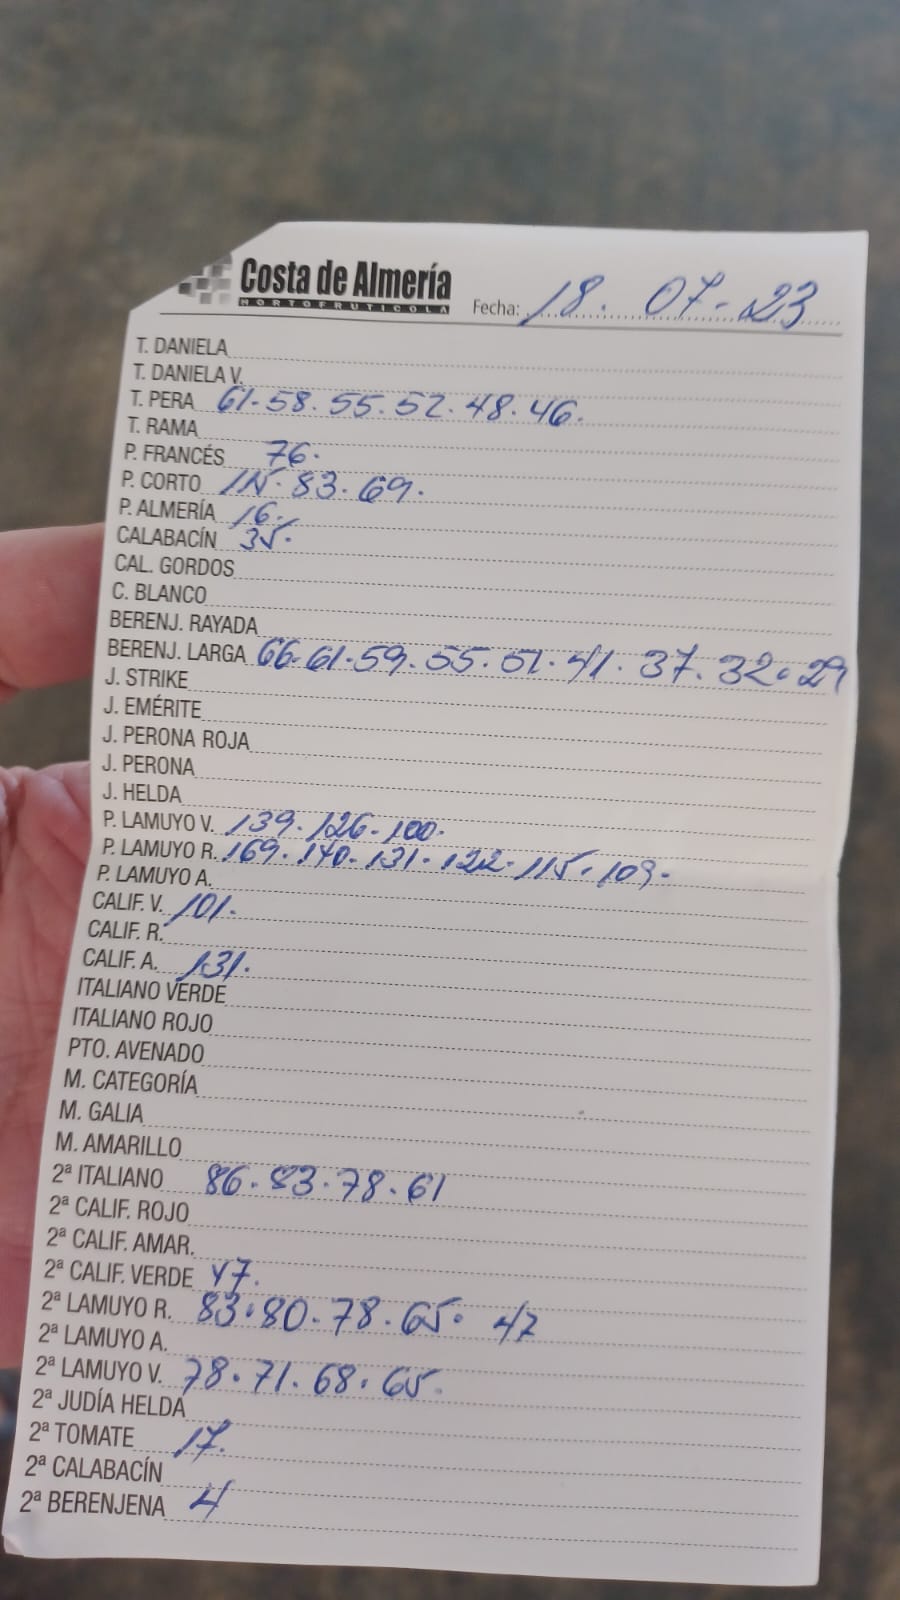 Costa de Almería
HORTOFRUTICOLA
Fecha: 18. 07-23
T. DANIELA
T. DANIELA V.
T. PERA 61.58.55.52.48.46.
T. RAMA
P. FRANCÉS 76.
P. CORTO 83.69.
P. ALMERÍA 16.
CALABACÍN 35.
CAL. GORDOS
C. BLANCO
BERENJ. RAYADA
BERENJ. LARGA 66.61.59.55.51.41.37.32.29
J. STRIKE
J. EMÉRITE
J. PERONA ROJA
J. PERONA
J. HELDA
P. LAMUYO V. 139.126.100.
P. LAMUYO R. 169.140.131.122.115.109.
P. LAMUYO A.
CALIF. V. 101.
CALIF. R.
CALIF. A. 131.
ITALIANO VERDE
ITALIANO ROJO
PTO. AVENADO
M. CATEGORÍA
M. GALIA
M. AMARILLO
2ª ITALIANO 86.83.78.61
2ª CALIF. ROJO
2ª CALIF. AMAR.
2ª CALIF. VERDE 47.
2ª LAMUYO R. 83.80.78.65. 47
2ª LAMUYO A.
2ª LAMUYO V. 78.71.68.65.
2ª JUDÍA HELDA
2ª TOMATE 17.
2ª CALABACÍN
2ª BERENJENA 4